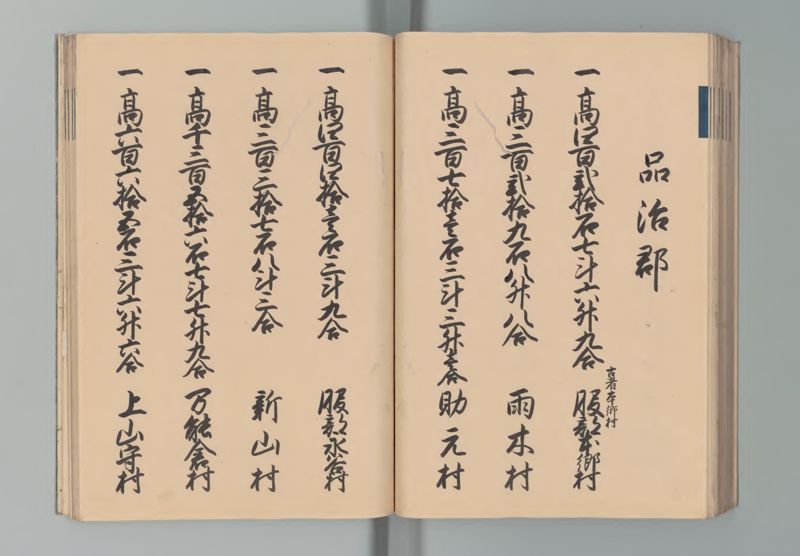 品治郡
一高四百弐拾石七斗六升九合 服部本郷村
古者本郷村
一高三百弐拾九石八升八合 雨木村
一高三百七拾壱石三斗三升壱合 助元村
一高四百四拾壱石三斗九合 服部永谷村
一高三百三拾七石八斗三合 新山村
一高千三百五拾六石七斗七升九合 万能倉村
一高六百六拾五石三斗六升六合 上山守村